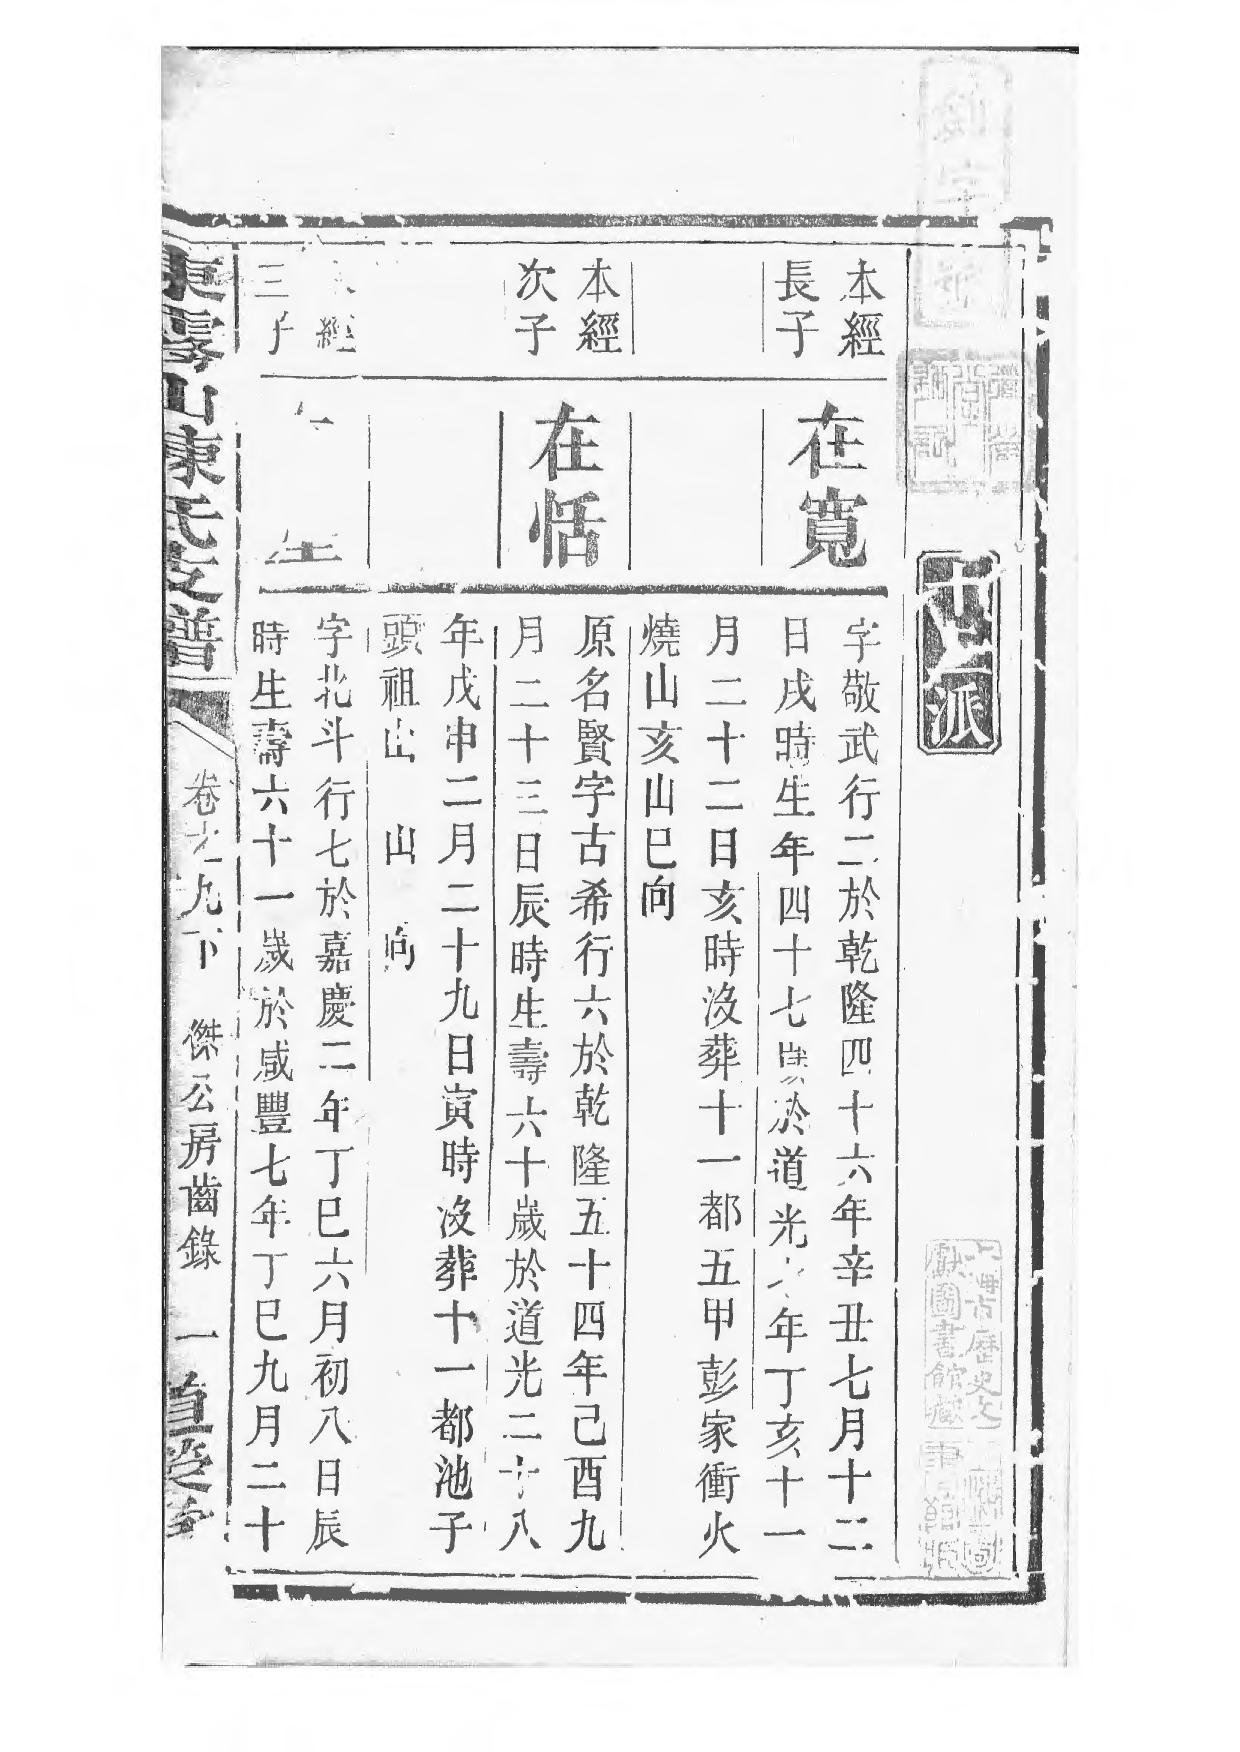 十二派
本經
長子
在寬
字敬武行二於乾隆四十六年辛丑七月十二
日戌時生年四十七歲於道光年丁亥十一
月二十二日亥時沒葬十一都五甲彭家衝火
燒山亥山巳向
本經
次子
在恬
原名賢字古希行六於乾隆五十四年己酉九
月二十三日辰時生壽六十歲於道光二十八
年戊申二月二十九日寅時沒葬十一都池子
頭祖山 山 向
經
三子
字北斗行七於嘉慶二年丁巳六月初八日辰
時生壽六十一歲於咸豐七年丁巳九月二十
東霧山陳氏支譜
卷之九下 傑公房齒錄 一
上海古歷史文
獻圖書館藏